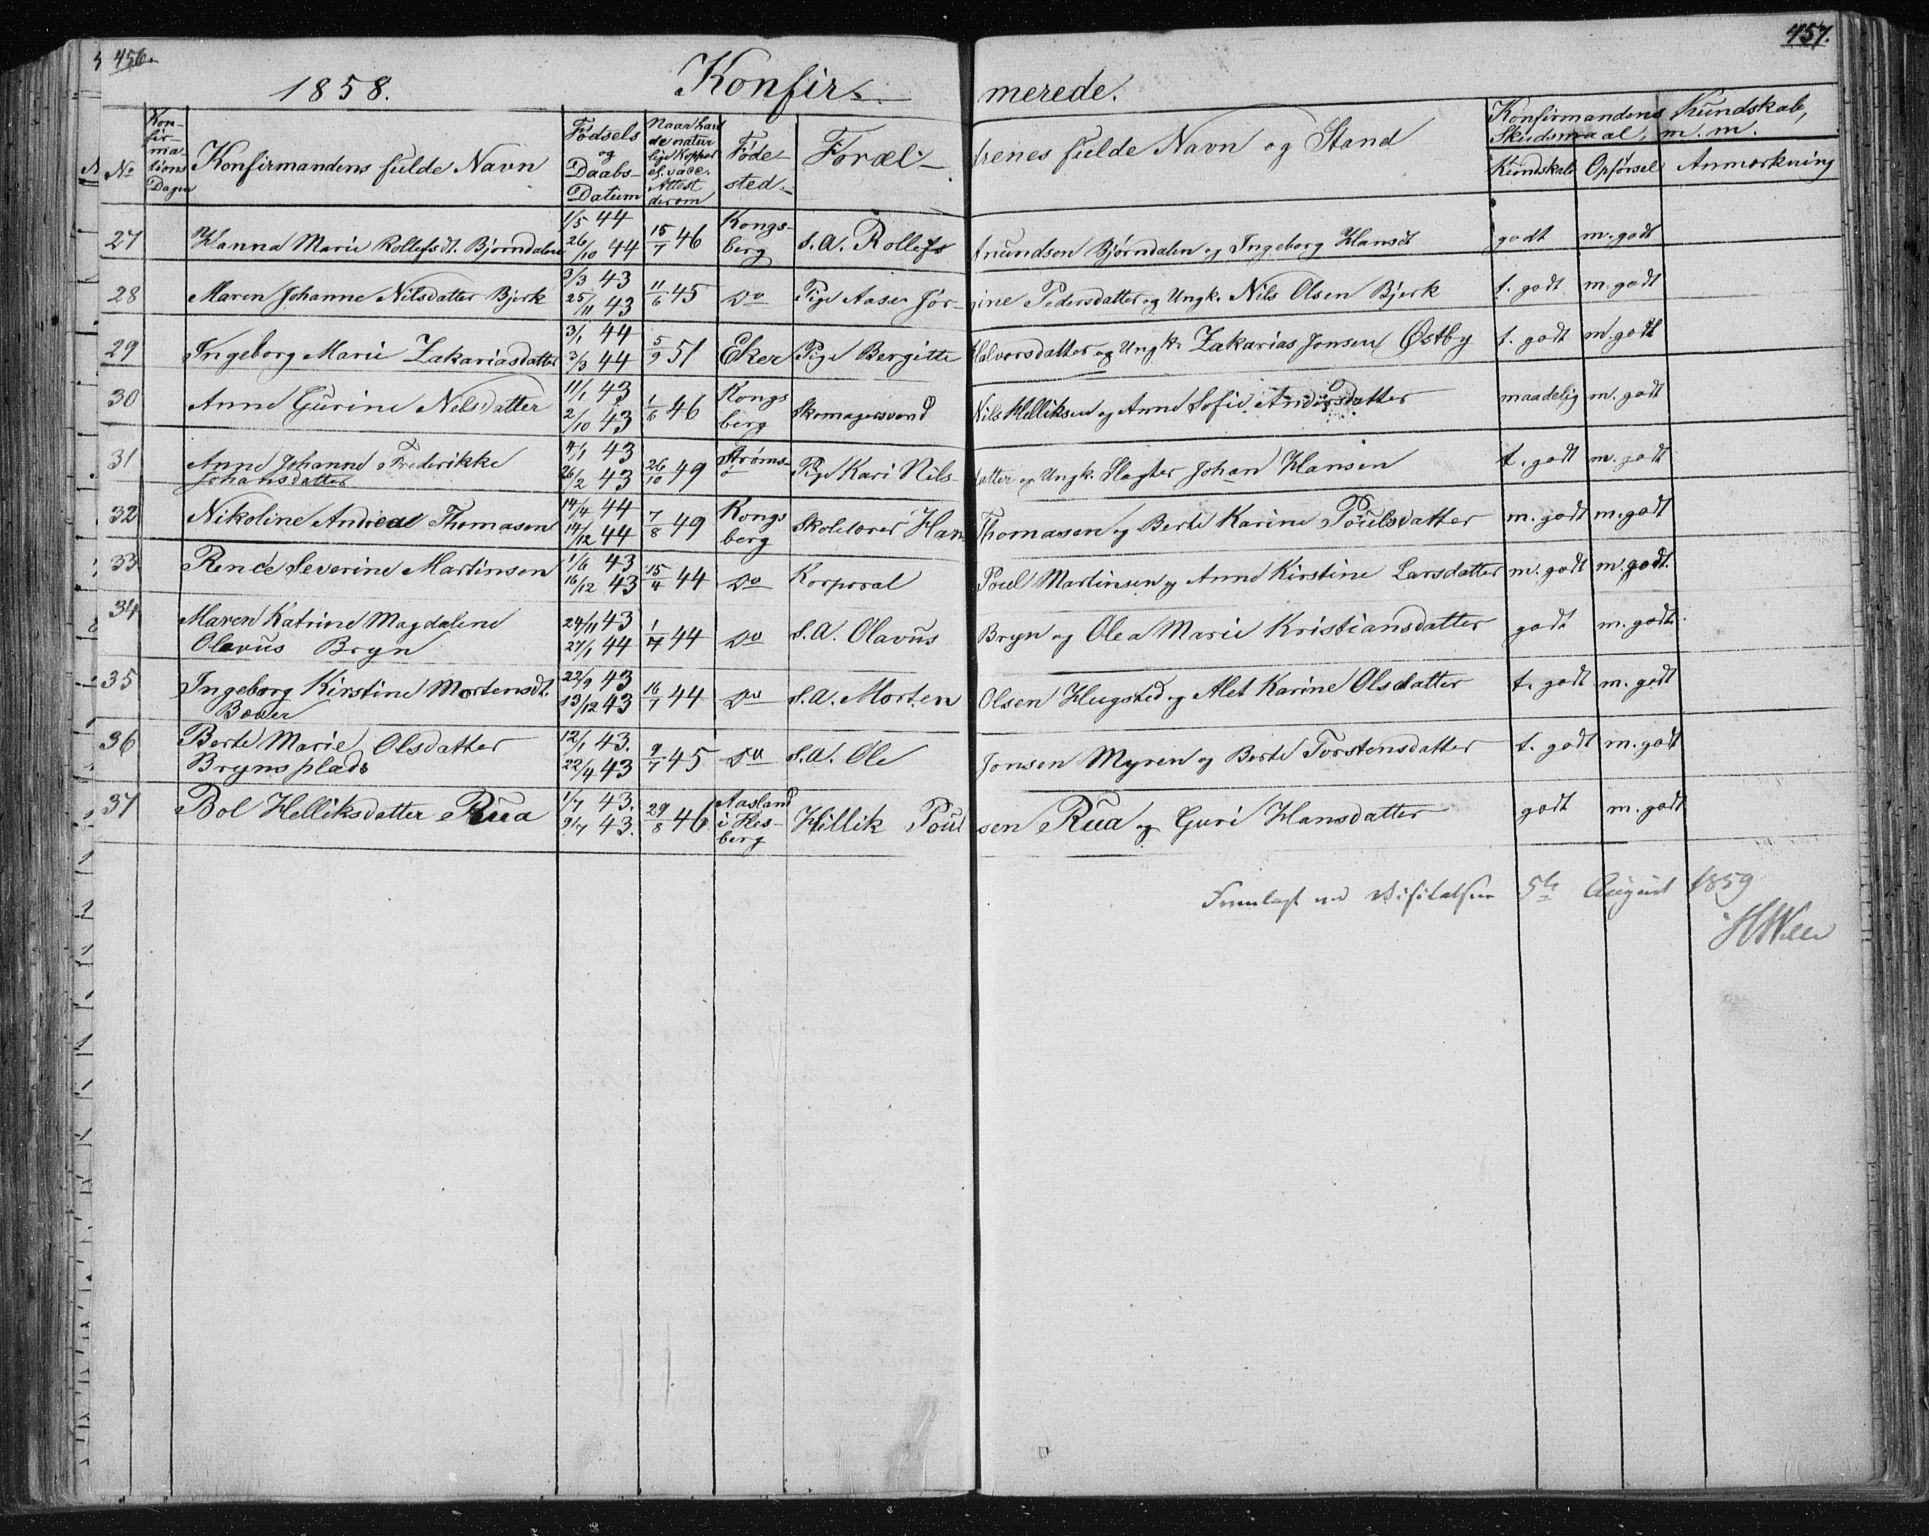 456. 457.
1858. Konfir- merede.
No Kon-fir-ma-tions Dagen Konfirmandens fulde Navn Fødsels og Daabs- Datum Naar havt de naturlige Kopper el. vacc. Attest derom Føde- sted. Foræl- drenes fulde Navn og Stand Konfirmandens Kundskab, Skudsmaal, m. m.
Kundskab Opførsel Anmærkning
27 Hanna Marie Rollefsdt. Bjørndalen 1/5 44 26/10 44 15/7 46 Kongs-berg s.A. Rollef Anundsen Bjørndalen og Ingeborg Hansdt godt m. godt
28 Maren Johanne Nilsdatter Bjerk 3/3 43 25/11 43 11/6 45 Do Pige Aase Jør- gine Pedersdatter og Ungk. Nils Olsen Bjerk t. godt m. godt
29 Ingeborg Marie Zakariasdatter 3/1 44 3/3 44 5/9 51 Eker Pige Bergitte Halvorsdatter og Ungk. Zakarias Jonsen Østby t. godt m. godt
30 Anne Gurine Nilsdatter 11/1 43 2/10 43 1/6 46 Kongs berg Skomagersvend Nils Helliksen og Anne Sofie Andersdatter maadelig m. godt
31 Anne Johanne Frederikke
Johansdatter 4/1 43 26/2 43 26/10 49 Strøms-ø Pige Kari Nils- datter og Ungk. Slagter Johan Hansen t. godt m. godt
32 Nikoline Andrea Thomasen 14/4 44 14/12 44 7/8 49 Kongs berg Skolelærer Hans Thomasen og Berte Karine Poulsdatter m. godt m. godt
33 Rence Severine Martinsen 1/6 43 16/12 43 15/4 44 Do Korporal Poul Martinsen og Anne Kirstine Larsdatter m. godt m. godt
34 Maren Katrine Magdalene
Olavus Bryn 24/11 43 27/1 44 44 Do s.A. Olavus Bryn og Olea Marie Kristiansdatter godt m. godt
35 Ingeborg Kirstine Mortensdt. 22/9 43 13/12 43 16/7 44 Do s.A. Morten Olsen Hugsted og Alet Karine Olsdatter t. godt m. godt
36 Berte Marie Olsdatter
Bryns plads 12/1 43. 22/4 43 9/7 45 Do s.A. Ole Jonsen Myren og Berte Torstensdatter t. godt m. godt
37 Bol Helliksdatter Rua 1/7 43. 9/7 43. 29/8 46 Aasland i Hes-berg Hellik Poul sen Rua og Guri Hansdatter godt m. godt
Fremlagt ved Visitatsen 5te August 1859